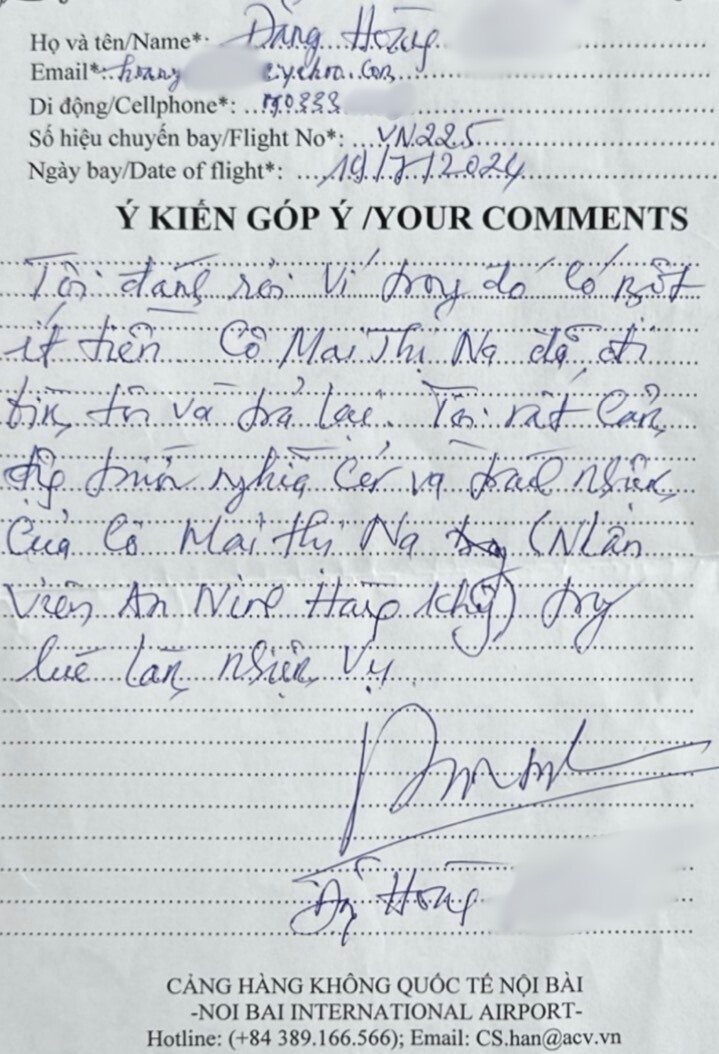 Họ và tên/Name*: Đặng Hoàng
Email*: hoang
Di động/Cellphone*:
Số hiệu chuyến bay/Flight No*: VN225
Ngày bay/Date of flight*: 19/7/2024
Ý KIẾN GÓP Ý /YOUR COMMENTS
Tôi đánh rơi Ví trong đó có một
ít tiền Cô Mai Thị Na đã đi
tìm tôi và trả lại. Tôi rất Cảm
động nghĩa Cử và trách nhiệm
Của Cô Mai Thị Na (Nhân
Viên An Ninh Hàng Không) trong
lúc làm nhiệm vụ
Đặng Hoàng
CẢNG HÀNG KHÔNG QUỐC TẾ NỘI BÀI
-NOI BAI INTERNATIONAL AIRPORT-
Hotline: (+84 389.166.566); Email: CS.han@acv.vn